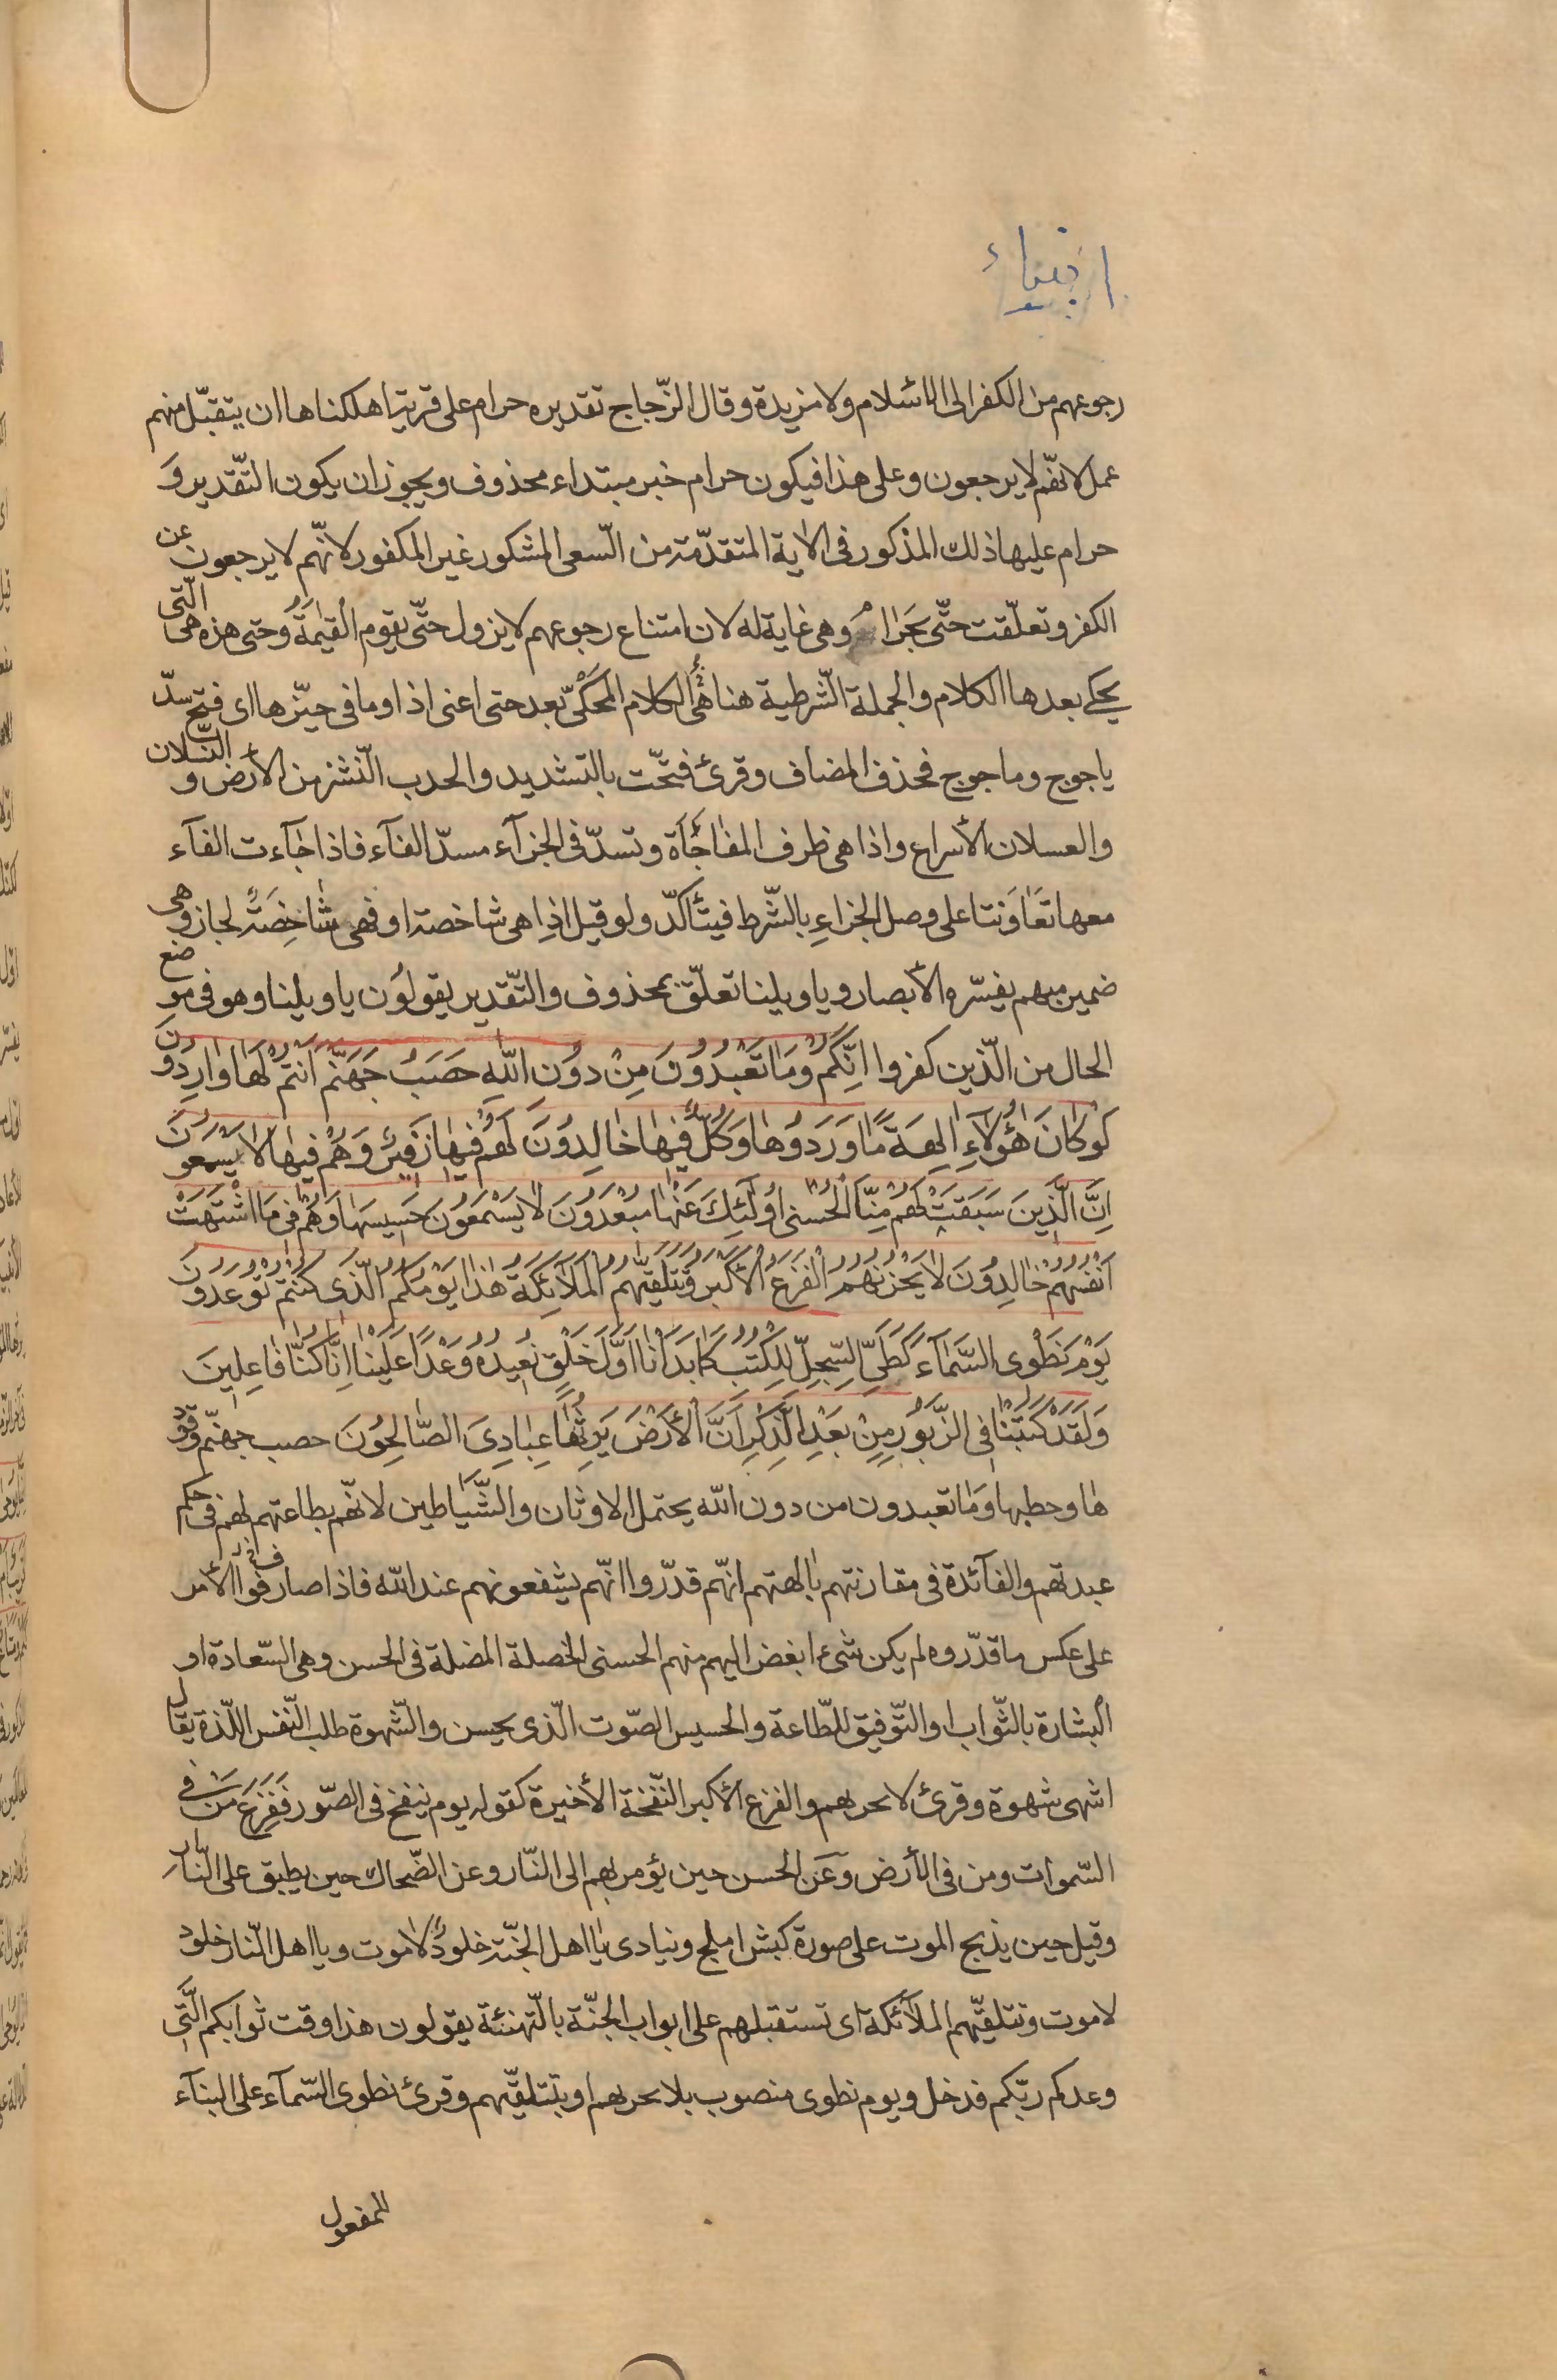 انبياء
رجوعهم من الكفر الى الاسلام ولا مزيدة وقال الزّجاج تقديره حرام على قرية اهلكناها ان يتقبّل منهم
عمل لانهّم لا يرجعون وعلى هذا فيكون حرام خبر مبتداء محذوف ويجوز ان يكون التّقدير وَ
حرام عليها ذلك المذكور فى الاية المتقدّمة من السّعى المشكور غير المكفور لانّهم لا يرجعون عن
الكفر وتعلّقت حتّى بحرام وهى غاية له لان امتناع رجوعهم لا يزول حتّى يقوم القيٰمَةُ وحتى هذه هى الّتى
يحكى بعدها الكلام والجملة الشّرطية هنا هى الكلام المحكىّ بعد حتى اعنى اذا وما فى حيّزها اى فتح سدّ
ياجوج وماجوج فحذف المضاف وقرئ فتّحت بالتشديد والحدب النّشز من الأرض و النّسلان
والعسلان الأسراع واذا هى ظرف المفاجَأة وتسدّ فى الجزآء مسدّ الفآء فاذا جٰآءت الفآء
معها تعٰاوَنتا على وصل الجزاءِ بالشّرط فيتأكدّ ولو قيل اذِا هى شاخصة او فهى شٰاخِصَةً لجاز وهى
ضمير مبهم يفسّره الأبصار ويا ويلنا تعلّق بمحذوف والتّقدير يقولوُن يا ويلنا وهو فى موضع
الحال من الّذين كفروا اِنّكُمْ وَمٰا تَعْبُدُونَ مِنْ دوُنِ اللّٰهِ حَصَبُ جَهَنّمَ اَنْتُمْ لَهٰا وٰارِدُونَ
لَوْ كٰانَ هٰؤُلاٰءِ اٰلِهَةً مٰا وَرَدُوهٰا وَكُلٌّ فيهٰا خٰالِدُونَ لَهُمْ فيهٰا زَفيرٌ وَهُمْ فيهٰا لاٰ يَسْمَعُونَ
اِنَّ الَّذينَ سَبَقَتْ لَهُمْ مِنّا الْحُسْنى اُولٰئِكَ عَنْهٰا مُبْعَدُونَ لاٰ يَسْمَعُونَ حَسيسَهٰا وَهُمْ فى مَا اشْتَهَتْ
اَنْفُسُهُمْ خٰالِدُونَ لاٰ يَحْزُنُهُمُ الْفَزَعُ الْأَكْبَرُ وَتَتَلَقّيٰهُمُ الْمَلآئِكَةُ هٰذٰا يَوْمُكُمُ الَّذى كُنْتُمْ توُعَدُونَ
يَوْمَ نَطْوِى السَّمٰآءَ كَطَىِّ السِّجِلِّ لِلْكُتُبِ كَمٰا بَدَأنٰا اَوَّلَ خَلْقٍ نُعيدُهُ وَعْدًا عَلَيْنٰا اِنّٰا كُنّٰا فٰاعِلينَ
وَلَقَدْ كَتَبْنٰا فِى الزَّبُورِ مِنْ بَعْدِ الذِّكْرِ اَنَّ الْأَرْضَ يَرِثُهٰا عِبٰادِىَ الصّٰالِحُونَ حصب جهنّم وقو
دها وحطبها وَمٰا تعبدون من دون اللّه يحتمل الاوثان والشّيٰاطين لانهّم بطاعتهم لهم فى حكم
عبدتهم والفآئدة فى مقارنتهم بٰالهتهم انّهم قدّروا انّهم يشفعونهم عند اللّه فاذا صارفوا الأمر
على عكس ما قدّروه لم يكن شئ ابغض اليهم منهم الحسنى الخصلة المضلة فى الحسن وهى السّعادة او
البشارة بالثّواب او التّوفيق للطّاعة والحسيس الصّوت الّذى يحسن والشّهوة طلب النّفس اللّذة يقال
اشهى شهوة وقرئ لا يحزنهم والفزع الأكبر النّفخة الأخيرة كقوله يوم ينفخ فى الصّور فَفَزِعَ مَنْ فى
السّموات ومن فى الأرض وَعَن الحسن حين يؤمر بهم الى النّار وعن الضّحاك حين يطبق على النّار
وقيل حين يذبح الموت على صورة كبش املح وينادى يٰا اهل الجنّة خلودٌ لاٰ موت ويا اهل النّار خلود
لا موت وتتلقّيهم الملآئكة اى تستقبلهم على ابواب الجنّة بالتّهنئة يقولون هذا وقت ثوابكم الّتى
وعدكم ربّكم قد خل ويوم نطوى منصوب بلا يحزنهم او بتتلقّيهم وقرئ نطوى السّمآء على البنآء
للمفعول